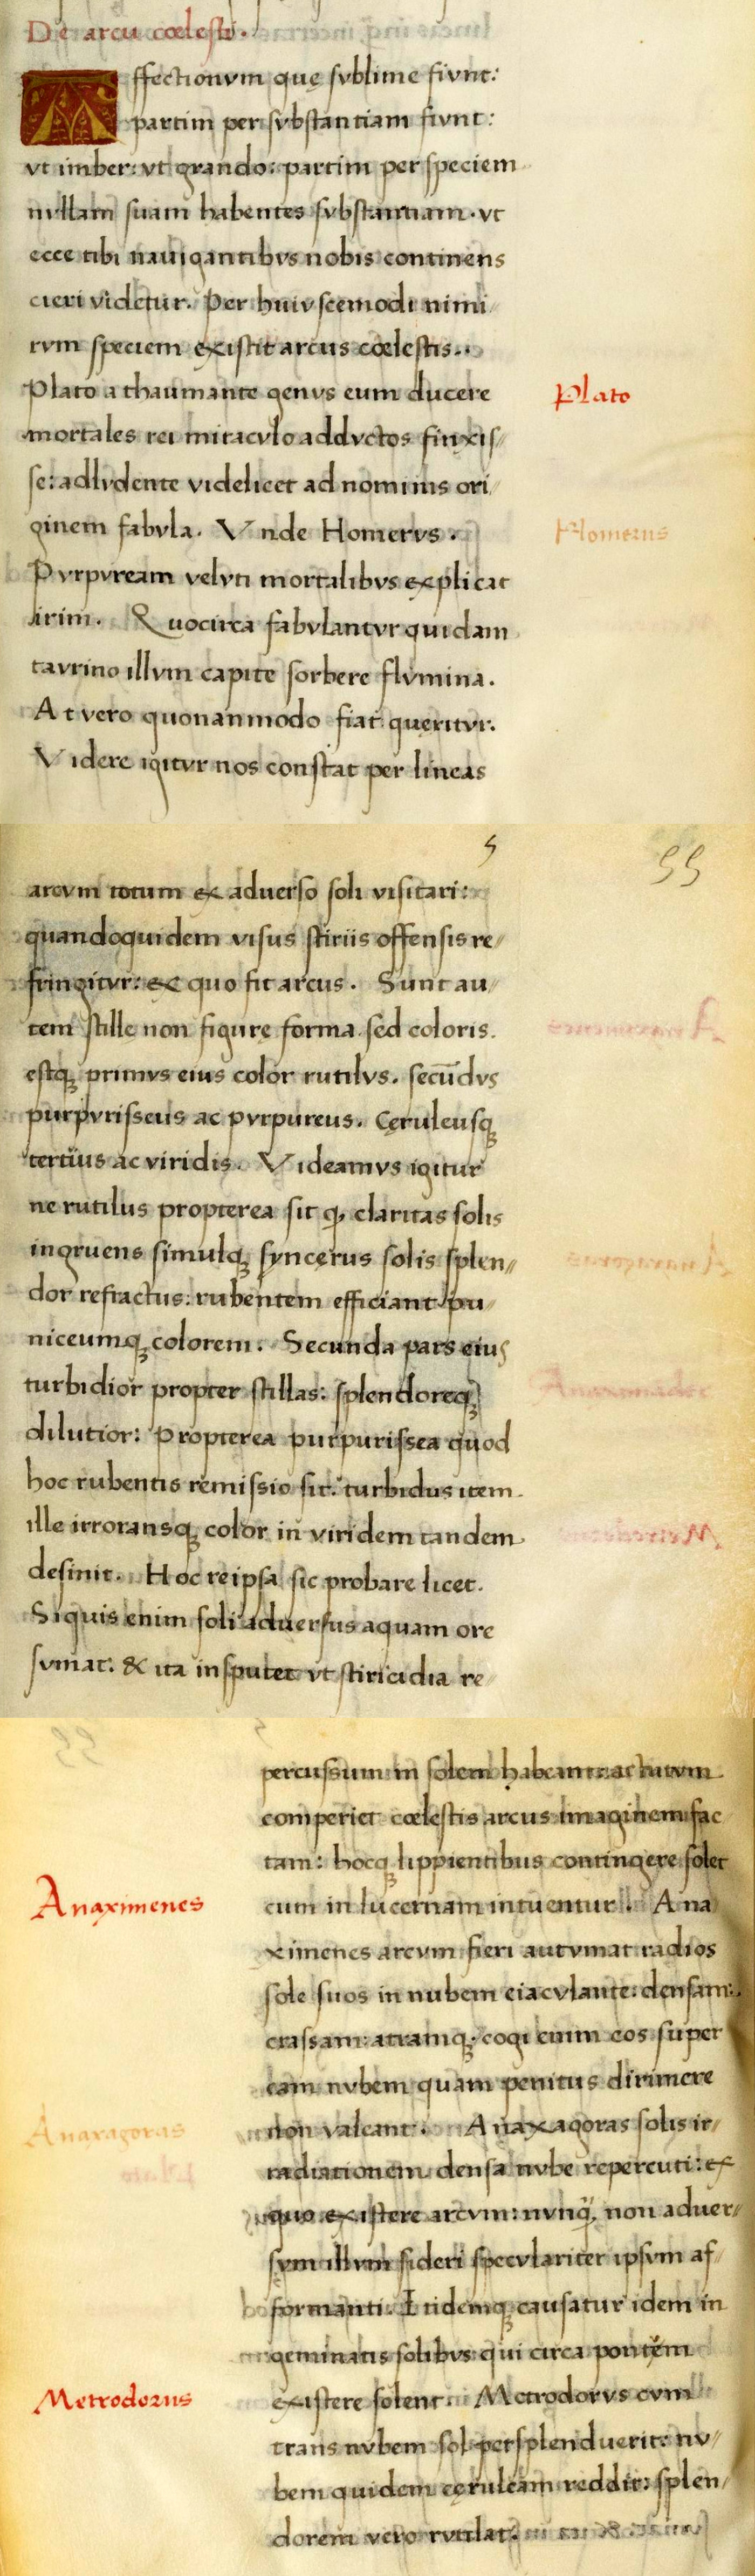 De arcu cœlesti.
Affectionvm que svblime fivnt:
partim per svbstantiam fivnt:
vt imber: vt grando: partim per speciem
nvllam suam habentes svbstantiam. vt
ecce tibi nauigantibvs nobis continens
cieri videtur. Per huivscemodi nimi
rvm speciem existit arcus cœlestis..
Plato a thaumante genvs eum ducere
Plato
mortales rei miracvlo addvctos finxis//
se: adlvdente videlicet ad nominis ori
ginem fabvla. Vnde Homervs.
Homerus
Pvrpvream velvti mortalibvs explicat
irim. Quocirca fabvlantvr quidam
tavrino illvm capite sorbere flvmina.
At vero quonanmodo fiat queritvr.
Videre igitvr nos constat per lineas
5 55
arcvm totum ex aduerso soli visitari:
quandoquidem visus stiriis offensis re//
fringitvr: ex quo fit arcus. Sunt au//
tem stille non figurę forma sed coloris.
estqꝫ primvs eius color rutilvs. secūdvs
purpvrisseus ac pvrpureus. Cęruleusqꝫ
tertius ac viridis. Videamvs igitur
ne rutilus propterea sit ꝙ claritas solis
ingruens simulqꝫ syncęrus solis splen//
dor refractus: rubentem efficiant pu//
niceumqꝫ colorem. Secunda pars eius
turbidior propter stillas: splendoreqꝫ
dilutior: Propterea purpurissea quod
hoc rubentis remissio sit. turbidus item
ille irroransqꝫ color in viridem tandem
desinit. Hoc reipsa sic probare licet.
Siquis enim soli aduersus aquam ore
svmat. & ita insputet vt stiricidia re//
percussum in solem habeant: actutvm
comperiet cœlestis arcus imaginem fac
tam: hocqꝫ lippientibus contingere solet
cum in lucernam intuentur. Ana
Anaximenes
ximenes arcvm fieri autvmat radios
sole suos in nubem eiacvlante: densam:
crassam: atramqꝫ. cogi enim eos super
eam nvbem quam penitus dirimere
non valeant. Anaxagoras solis ir//
Anaxagoras
radiationem densa nvbe repercuti: ex
quo existere arcvm: nvnꝙ̃ non aduer//
svm illvm sideri specvlariter ipsvm af//
formanti. Itidemqꝫ causatur idem in
geminatis solibvs qui circa pontēm
existere solent. Metrodorvs cvm
Metrodorus
trans nvbem sol persplenduerit: nv//
bem quidem cęruleam reddit: splen//
dorem vero rvtilat.